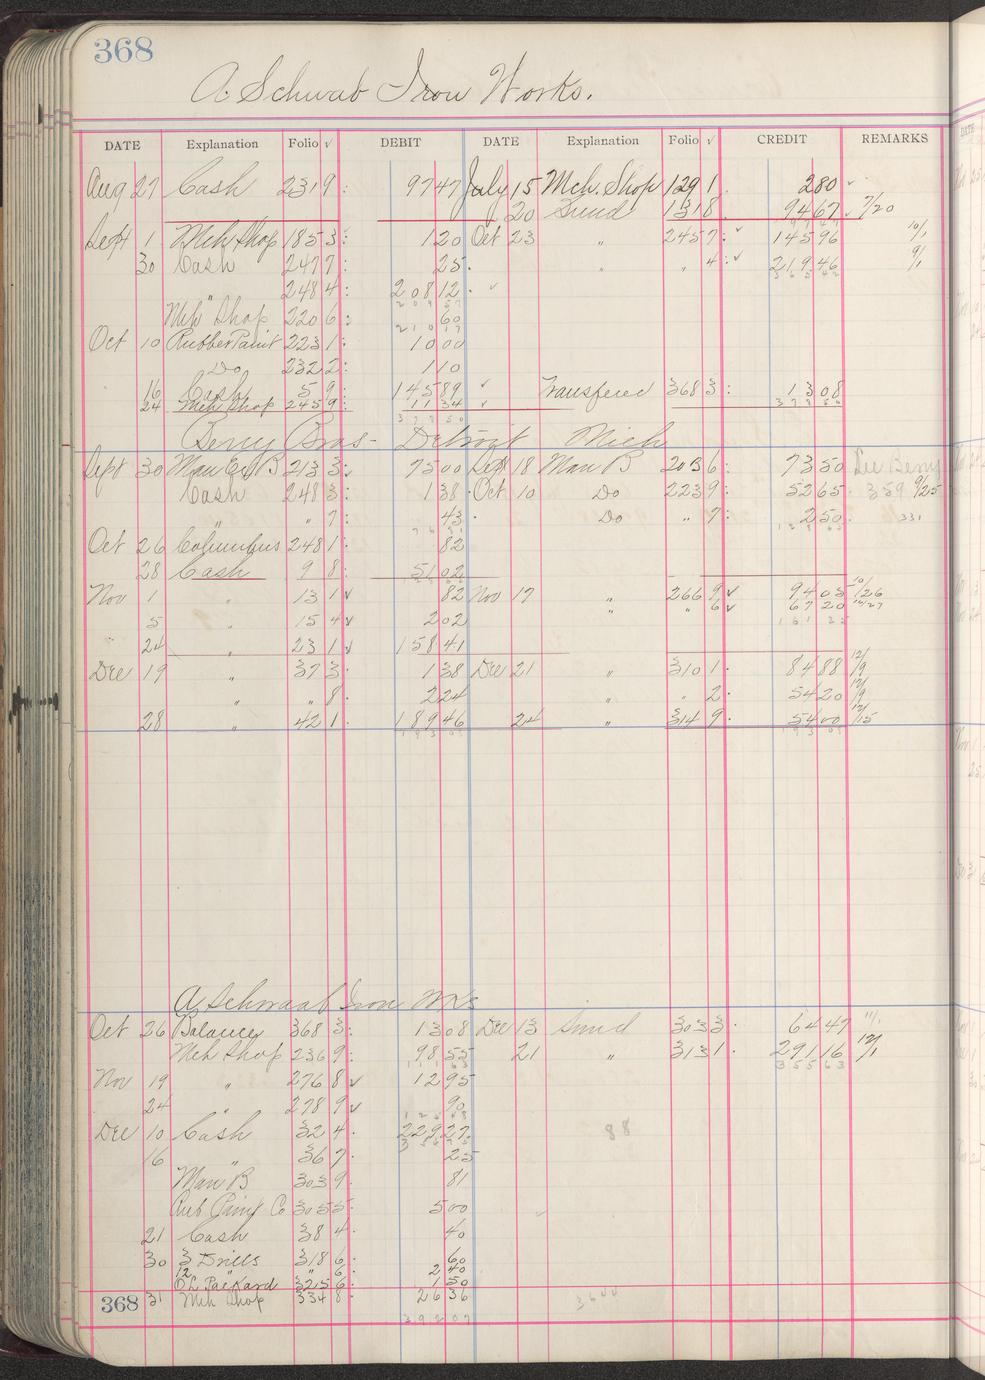 368
A. Schwab Iron Works.
DATE Explanation Folio √ DEBIT DATE Explanation Folio √ CREDIT REMARKS
Aug 27 Cash 231 9 97 47 July 15 Mch. Shop 129 1 2 80
20 Sund 131 8 94 67 7/20
97 47
Sept 1 Mch Shop 185 3 1 20 Oct 23 " 245 7 145 96 10/1
30 Cash 247 7 25 " " 4 219 46 9/1
365 42
" 248 4 208 12
209 57
Mch Shop 220 6 60
210 17
Oct 10 Rubber Paint 223 1 10 00
Do 232 2 1 10
16 Cash 5 9 145 89 Transfered 368 3 13 08
24 Mch Shop 245 9 11 34 378 50
378 50
Berry Bros - Detroit Mich
Sept 30 Man B 213 3 75 00 Sept 18 Man B 203 6 73 50 See Berry
Cash 248 3 1 38 Oct 10 Do 223 9 52 65 359 9/25
" " 7 43 Do " 7 2 50 331
Oct 26 Columbus 248 1 82
28 Cash 9 8 51 02
Nov 1 " 13 1 82 Nov 17 " 266 9 94 05 10/26
5 " 15 4 2 02 " " 6 67 20 10/27
161 25
" 24 " 23 1 158 41
Dec 19 " 37 3 1 38 Dec 21 " 310 1 84 88 12/9
" " 8 2 24 " " 2 54 20 12/9
28 " 42 1 189 46 24 " 314 9 54 00 12/15
A. Schwab Iron Wks
Oct 26 Balance 368 3 13 08 Dec 13 Sund 303 3 64 47 11/1
Mch Shop 236 9 98 55 21 " 313 1 291 16 12/1
355 63
Nov 19 " 276 8 12 95
24 " 278 9 90
Dec 10 Cash 32 4 229 27 88
16 " 36 7 25
Man B 303 9 81
Co 305 5 5 00
21 Cash 38 4 40
30 3 Drills 318 6 60
12 " " 6 2 40
Packard 321 5 6 1 50
368 31 Mch Shop 334 8 26 36
392 07